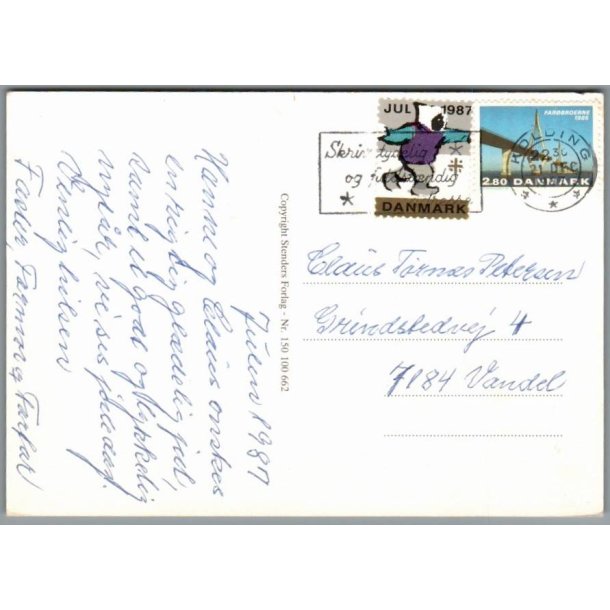 JUL 1987
DANMARK
FARØBROERNE
1985
2.80 DANMARK
KOLDING
22 30
21 DEC
Skriv tydelig
og fuldstændig
Claus Tornas Petersen
Grindstedvej 4
7184 Vandel
Copyright Stenders Forlag - Nr. 150 100 662
Julen 1987
Hanne og Claus ønskes
en rigtig glædelig jul,
samt et godt og lykkelig
nytår, vi ses juledag.
Venlig hilsen
Farmor og Farfar